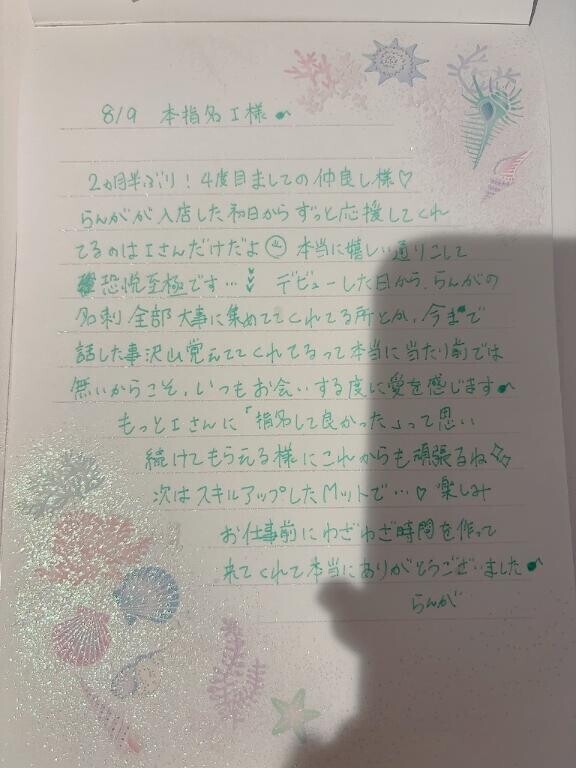 8/9 本指名 I様
2ヵ月半ぶり！4度目ましての仲良し様♡
らんがが入店した初日からずっと応援してくれ
てるのはIさんだけだよ 本当に嬉しい通りこして
恐悦至極です… デビューした日から、らんがの
名刺全部大事に集めててくれてる所とか、今まで
話した事沢山覚えててくれてるって本当に当たり前では
無いからこそ、いつもお会いする度に愛を感じます
もっとIさんに「指名して良かった」って思い
続けてもらえる様にこれからも頑張るね
次はスキルアップしたMットで…♡ 楽しみ
お仕事前にわざわざ時間を作って
来てくれて本当にありがとうございました
らんが